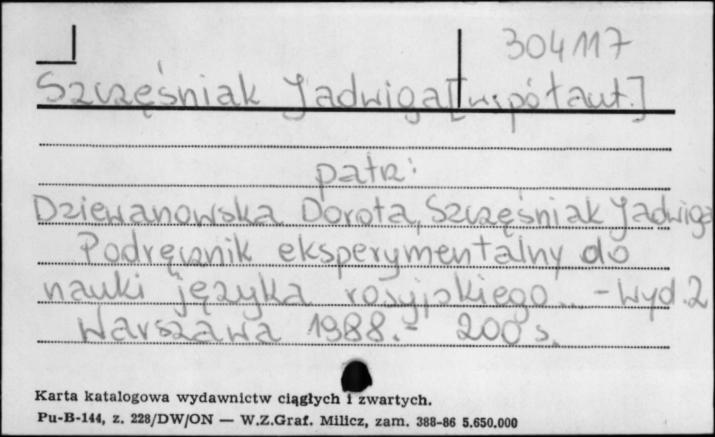 304117
Szczęśniak Jadwiga [współaut.]
patrz:
Dziewanowska Dorota, Szczęśniak Jadwiga
Podręcznik eksperymentalny do
nauki języka rosyjskiego... - Wyd. 2
Warszawa 1988.- 200 s.
Karta katalogowa wydawnictw ciągłych i zwartych.
Pu-B-144, z. 228/DW/ON — W.Z.Graf. Milicz, zam. 388-86 5.650.000